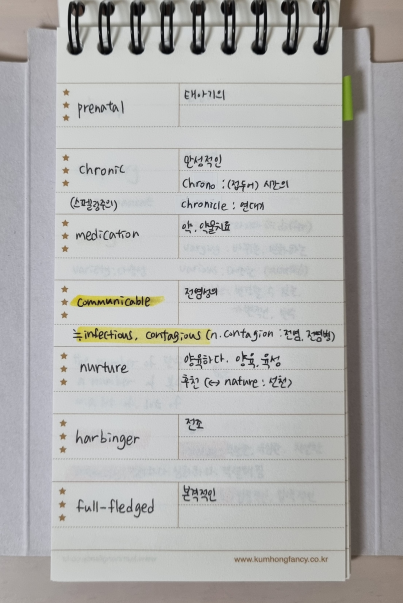 prenatal 태아기의
chronic 만성적인
chrono : (접두어) 시간의
(스펠링주의) chronicle : 연대기
medication 약, 약물치료
communicable 전염성의
≒ infectious, contagious (n. contagion : 전염, 전염병)
nurture 양육하다. 양육, 육성
후천 (↔ nature : 선천)
harbinger 전조
full-fledged 본격적인
www.kumhongfancy.co.kr